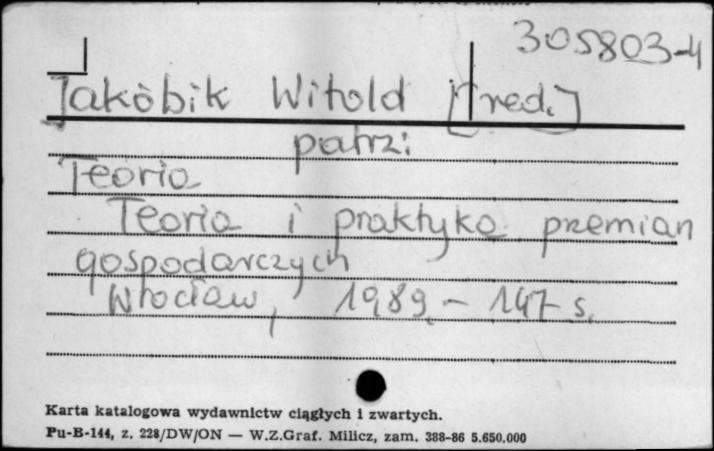 305803-4
Jakóbik Witold [red.]
patrz:
Teoria
Teoria i praktyka przemian
gospodarczych
Wrocław, 1989 – 147 s.
Karta katalogowa wydawnictw ciągłych i zwartych.
Pu-B-144, z. 228/DW/ON — W.Z.Graf. Milicz, zam. 388-86 5.650.000